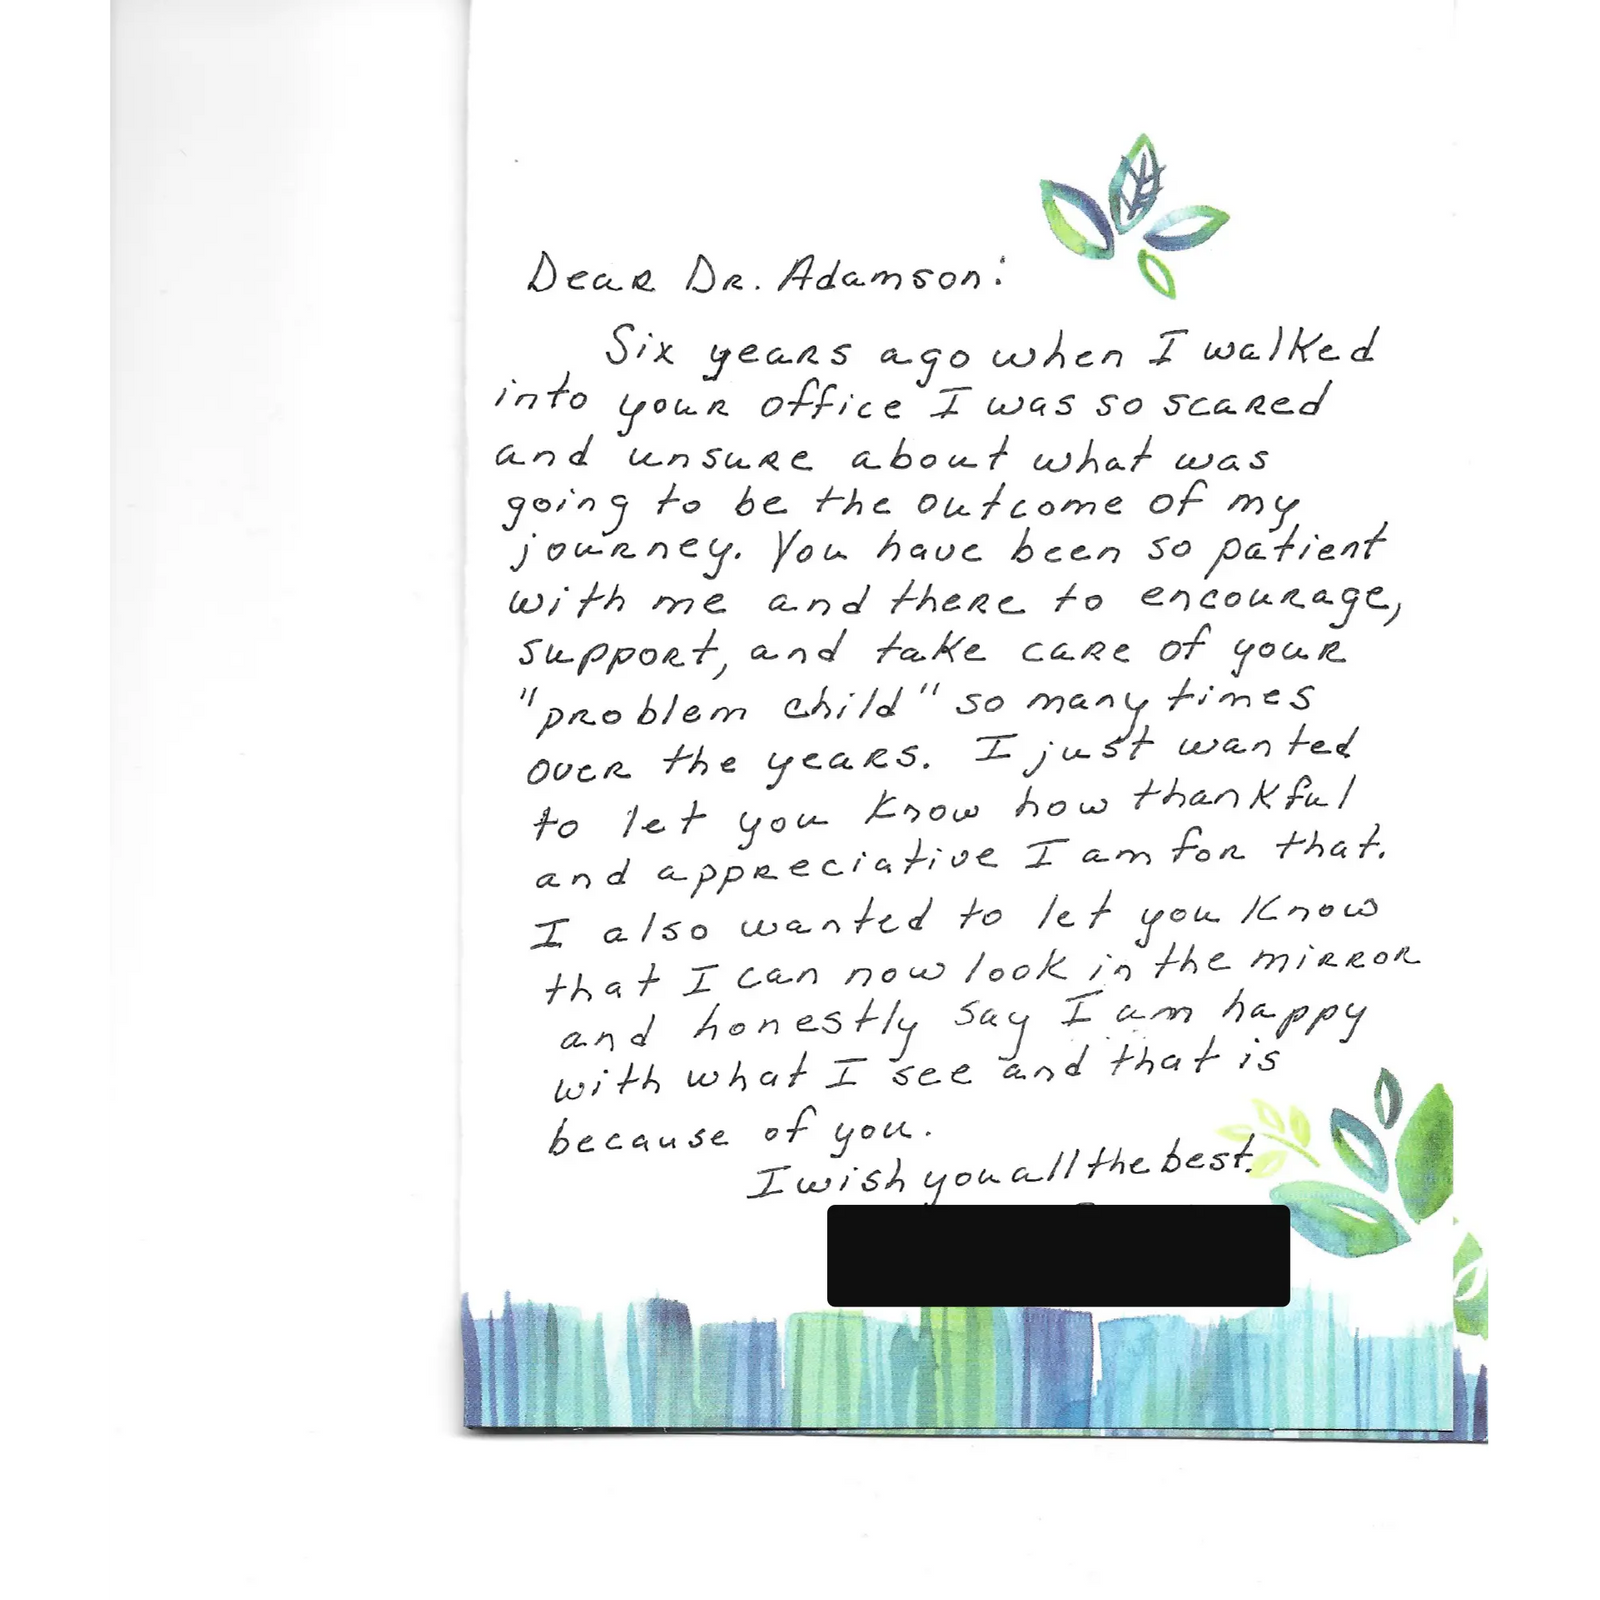 Dear Dr. Adamson:
Six years ago when I walked
into your office I was so scared
and unsure about what was
going to be the outcome of my
journey. You have been so patient
with me and there to encourage,
support, and take care of your
"problem child" so many times
over the years. I just wanted
to let you know how thankful
and appreciative I am for that.
I also wanted to let you know
that I can now look in the mirror
and honestly say I am happy
with what I see and that is
because of you.
I wish you all the best.